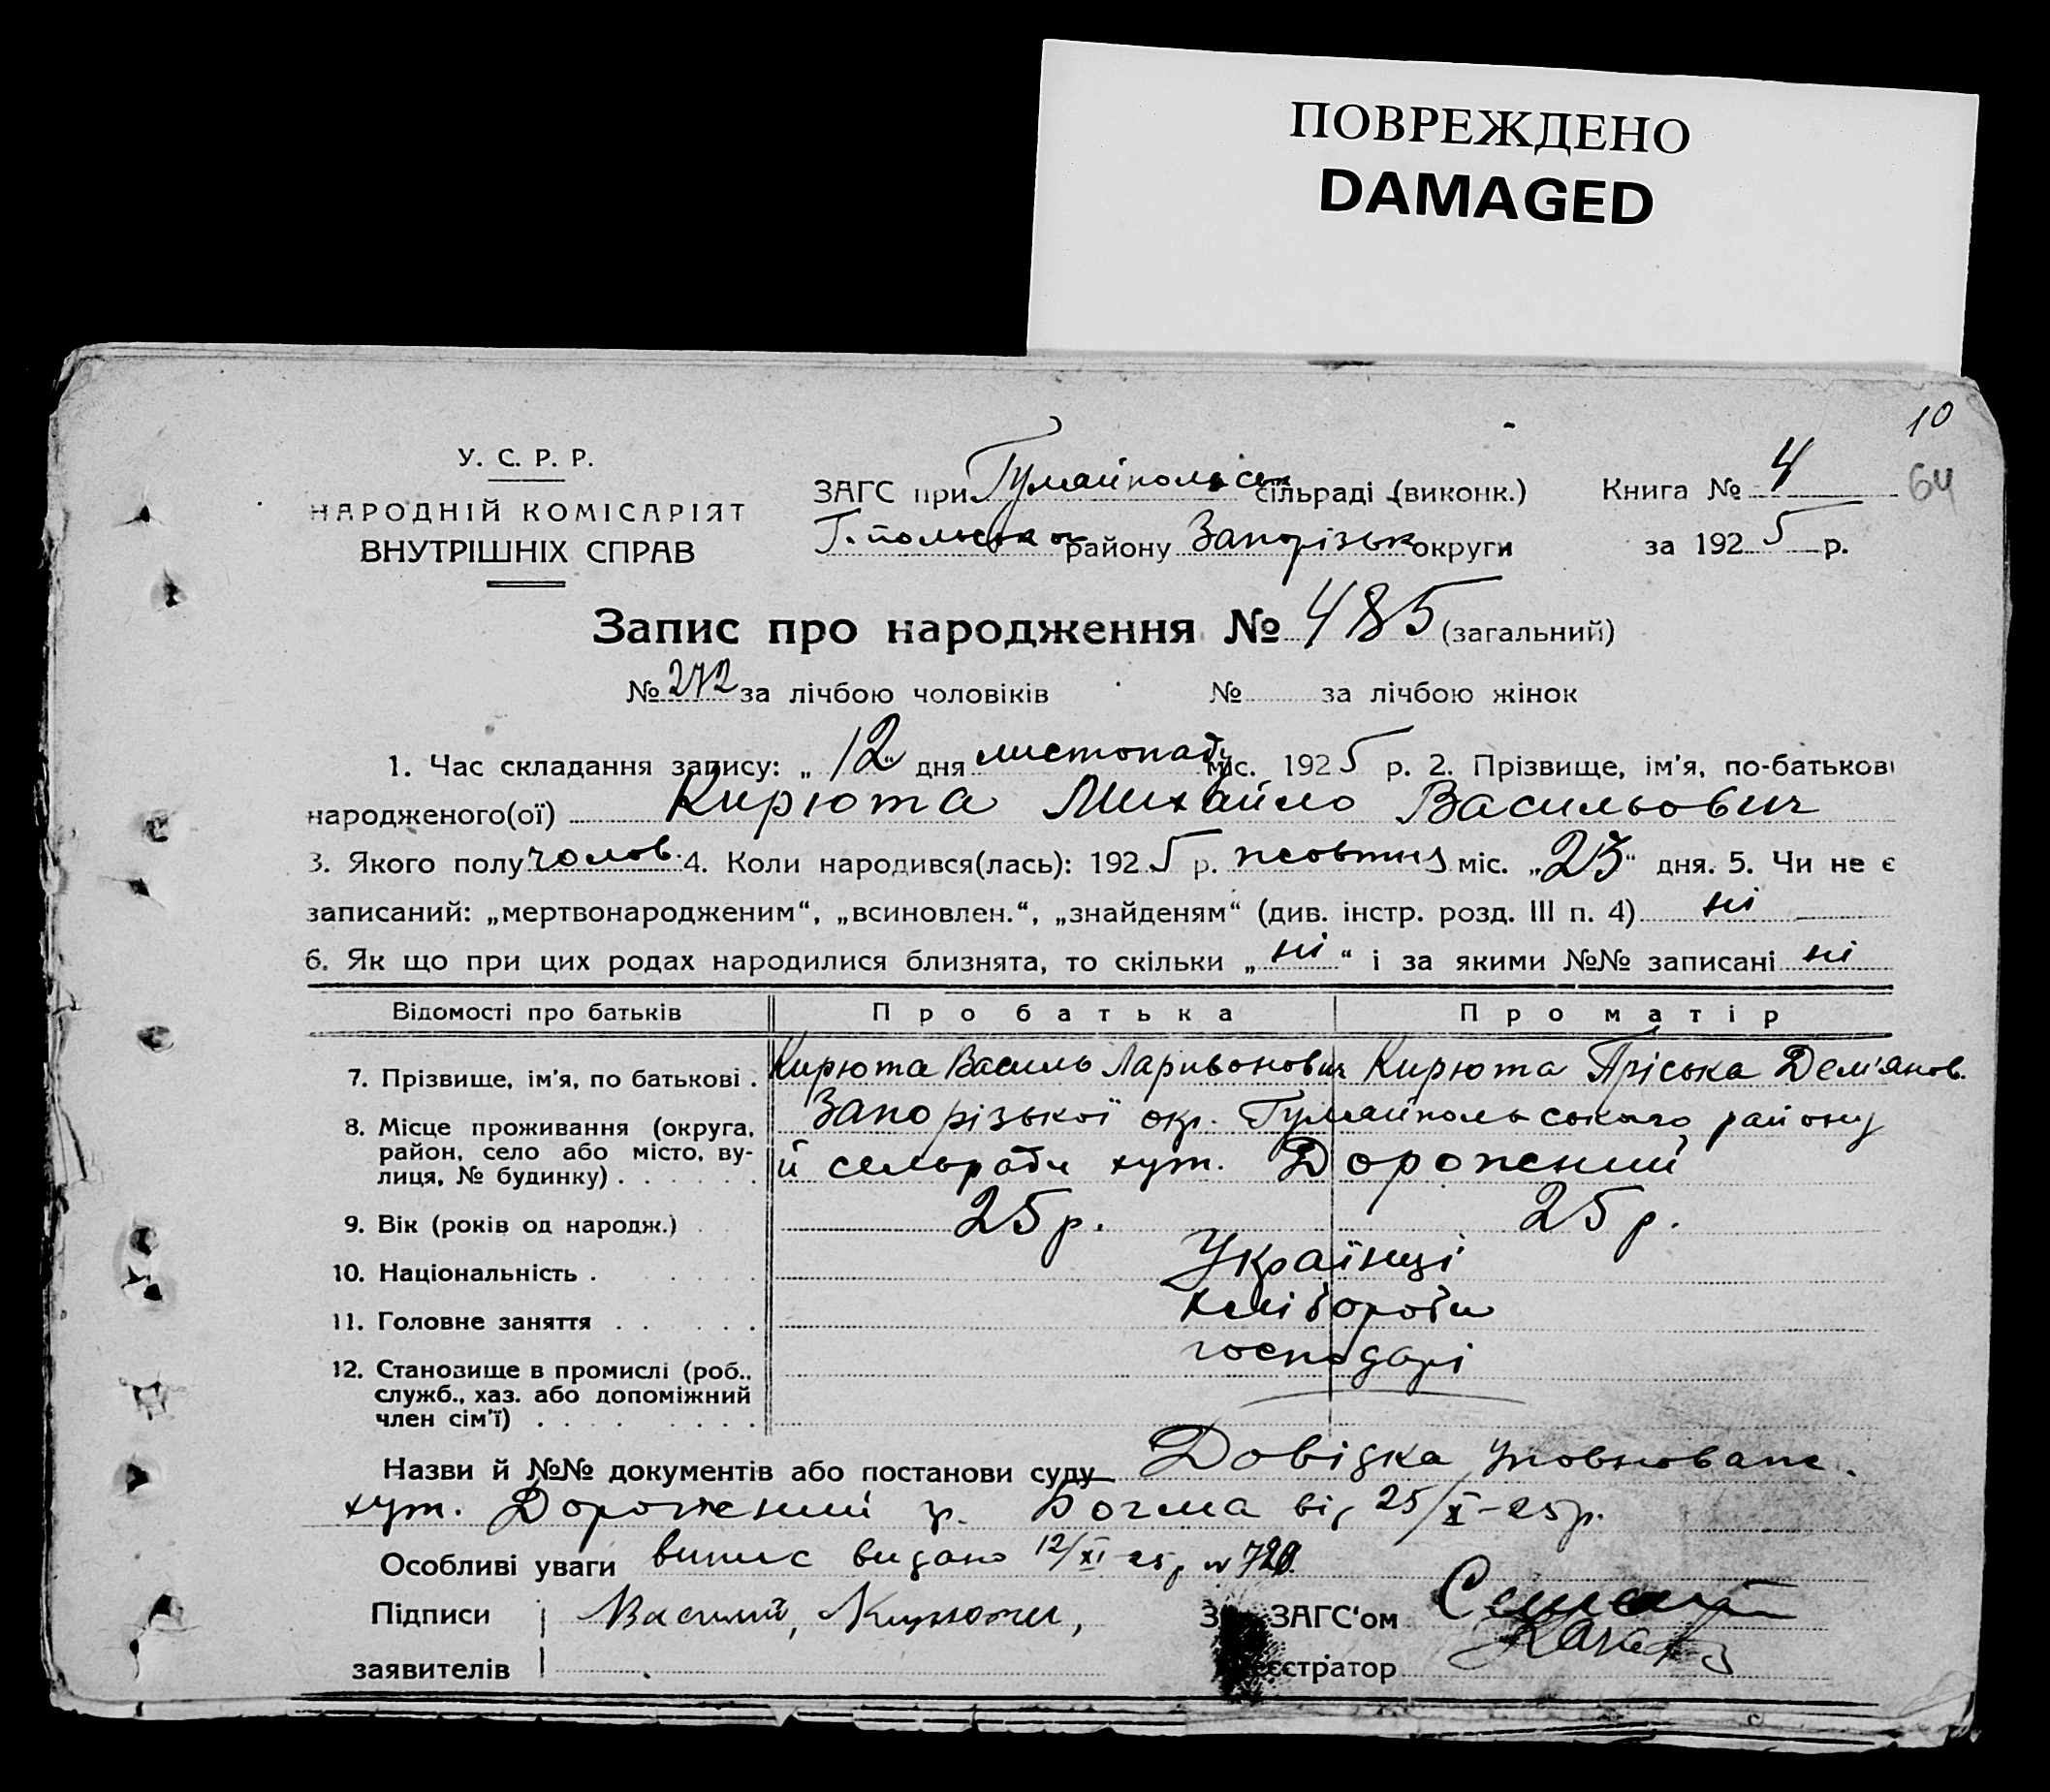 ПОВРЕЖДЕНО
DAMAGED
10
У. С. Р. Р.
НАРОДНІЙ КОМІСАРІЯТ
ВНУТРІШНІХ СПРАВ
ЗАГС при Гумайпольськ сільраді (виконк.) Книга № 4 64
Г.польськ району Запорізьк округи за 1925 р.
Запис про народження № 485 (загальний)
№ 272 за лічбою чоловіків № за лічбою жінок
1. Час складання запису: „12“ дня листопаду міс. 1925 р. 2. Прізвище, ім'я, по-батькові
народженого(ої) Кирюта Михайло Васильович
3. Якого полу чолов. 4. Коли народився(лась): 1925 р. жовтня міс. „23“ дня. 5. Чи не є
записаний: „мертвонародженим“, „всиновлен.“, „знайденям“ (див. інстр. розд. III п. 4) ні
6. Як що при цих родах народилися близнята, то скільки „ні“ і за якими №№ записані ні
Відомості про батьків Про батька Про матір
7. Прізвище, ім'я, по батькові . Кирюта Василь Ларивонович Кирюта Пріська Дем'янов.
8. Місце проживання (округа, район, село або місто, вулиця, № будинку) . Запорізької окр. Гумайпольського району
й сельради хут. Дорожений
9. Вік (років од народж.) 25 р. 25 р.
10. Національність . Українці
11. Головне заняття . . Хлібороби
12. Становище в промислі (роб., служб., хаз. або допоміжний член сім'ї) . господарі
Назви й №№ документів або постанови суду Довідка уповноваже.
хут. Дорожений гр. Богма від 25/X-25р.
Особливі уваги випис видано 12/XI-25р № 720.
Підписи Василий, Кирюти, ЗАГС'ом
заявителів єстратор